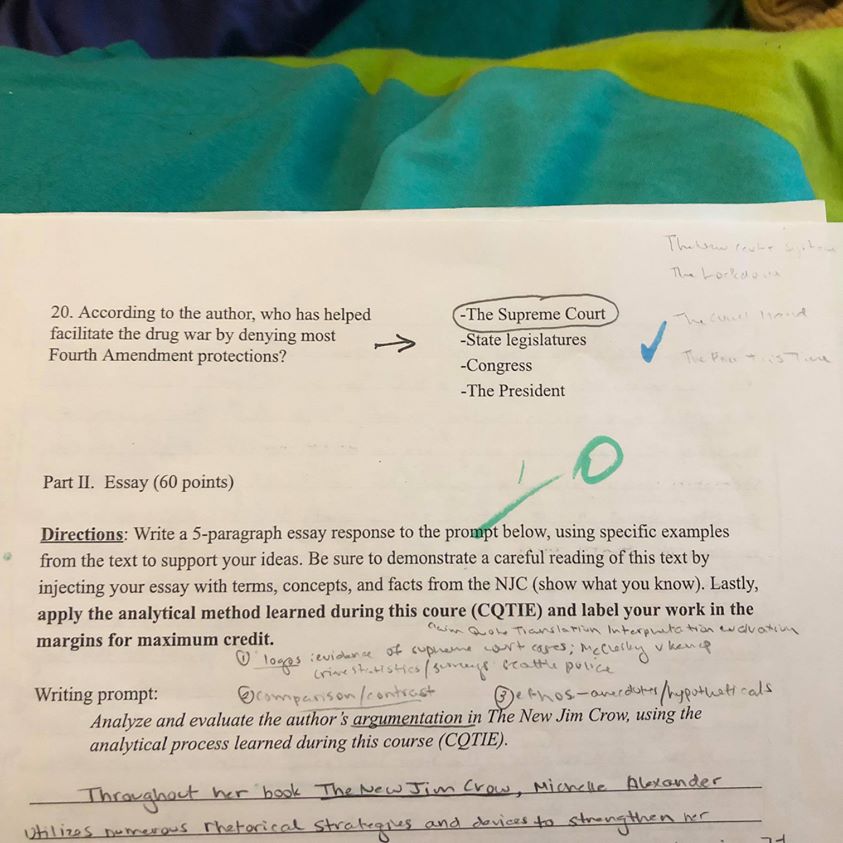 The Lockdown
20. According to the author, who has helped
facilitate the drug war by denying most
Fourth Amendment protections?
-The Supreme Court
-State legislatures
-Congress
-The President
Part II. Essay (60 points)
Directions: Write a 5-paragraph essay response to the prompt below, using specific examples
from the text to support your ideas. Be sure to demonstrate a careful reading of this text by
injecting your essay with terms, concepts, and facts from the NJC (show what you know). Lastly,
apply the analytical method learned during this coure (CQTIE) and label your work in the
margins for maximum credit.
Claim Quote Translation Interpretation evaluation
① logos: evidence of supreme court cases; v kemp
crime statistics/surveys seattle police
Writing prompt:
② comparison/contrast
③ ethos-anecdotes/hypotheticals
Analyze and evaluate the author's argumentation in The New Jim Crow, using the
analytical process learned during this course (CQTIE).
Throughout her book The New Jim Crow, Michelle Alexander
utilizes numerous rhetorical strategies and devices to strengthen her